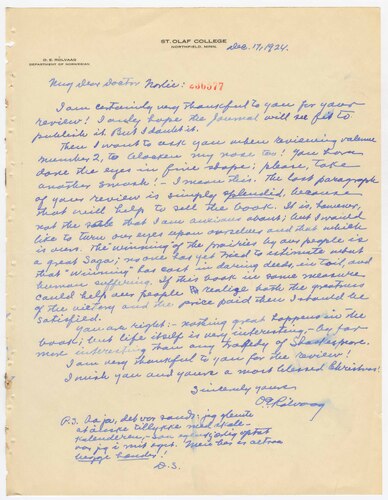 ST. OLAF COLLEGE
NORTHFIELD, MINN.
O. E. ROLVAAG
DEPARTMENT OF NORWEGIAN
Dec. 17, 1924.
My Dear Doctor Norlie:
I am certainly very thankful to you for your
review! I only hope the Journal will see fit to
publish it. But I doubt it.
Then I want to ask you when reviewing volume
number 2, to blacken my nose too! You have
done the eyes in fine shape; please, take
another smack! - I mean this: the last paragraph
of your review is simply splendid, because
that will help to sell the book. It is, however,
not the sale that I am anxious about; but I would
like to turn our eyes upon ourselves and that which
is ours. The winning of the prairies by our people is
a great Saga; no one has yet tried to estimate what
that "winning" has cost in daring deeds, in toil, and
human suffering. If this book in some measure
could help our people to realize both the greatness
of the victory and the price paid then I should be
satisfied.
You are right: - nothing great happens in the
book; but life itself is very interesting, - by far
more interesting than any tragedy of Shakespeare.
I am very thankful to you for the review!
I wish you and yours a most blessed Christmas!
Sincerely yours
O E Rölvaag
P.S. det var sandt: jeg glemte
at ønske tillykke med
kalenderen, - saa optat
var jeg i mit eget. Men
begge
D.S.